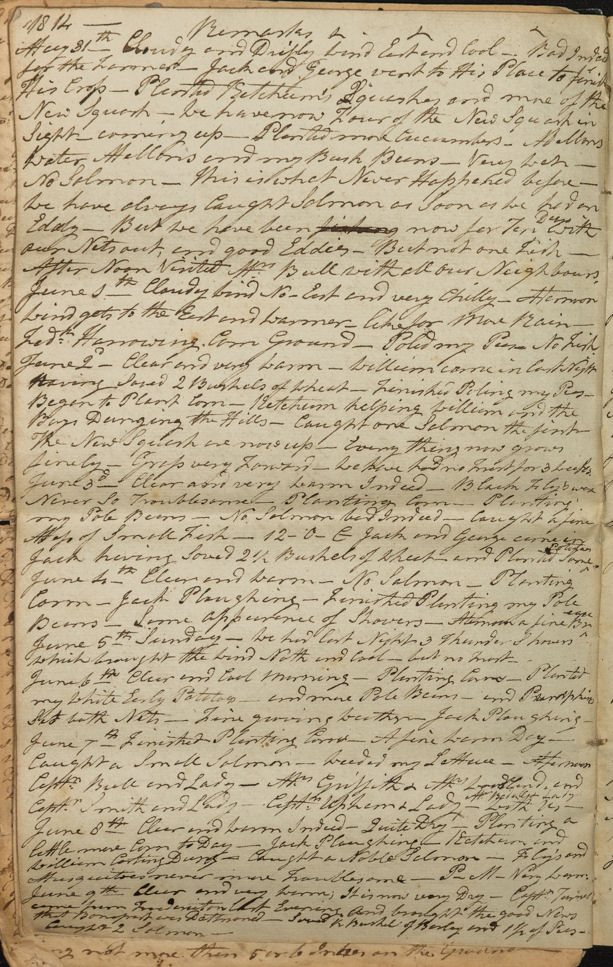 1814 — Remarks
May 31th Cloudy and Drisly wind East and Cool — Bad Indeed
for the Farmer — Jack and George went to His Place to finish
His Crop — Planted Ketchum's Squashes and more of the
New Squash — We have now Four of the New Squash in
Sight coming up — Planted more Cucumbers — Mellons
Water Mellons and my Bush Beans — Very wet —
No Salmon — this is what Never Happened before —
we have always Caught Salmon as Soon as we had an
Eddy — But we have been now for Ten Days With
our Nets out, and good Eddies — But not one Fish —
After Noon Visited Mrs Bull with all our Neighbours
June 1th Cloudy wind No-East and very Chilly — Afternoon
wind gets to the East and warmer — Like for More Rain —
Fredk Harrowing Corn Ground — Poled my Peas No Fish
June 2d — Clear and very warm — William came in Last Night
Having Sowed 2 Bushels of wheat — Finished Poling my Peas —
Began to Plant Corn — Ketchum helping William and the
Boys Dunging the Hills — Caught one Salmon the first
The New Squash are now up — Every thing now grows
finely — Grass very Forward — we have had no frost for 3 weeks
June 3d — Clear and very warm Indeed — Black Flys were
Never So Troublesome — Planting Corn — Planting
my Pole Beans — No Salmon bad Indeed — Caught a fine
Mess of Small Fish — 12-0-E Jack and George came in
Jack having Sowed 2½ Bushels of wheat and Planted Some Potatoes
June 4th — Clear and warm — No Salmon — Planting
Corn — Jack Ploughing — Finished Planting my Pole
Beans — Some appearence of Showers — Afternoon a fine
June 5th Sunday — we had Last Night 3 Thunder Showers
which brought the wind North and Cool — but no frost —
June 6th Clear and Cool Morning — Planting Corn — Planted
my White Early Potatoes — and more Pole Beans — and Pumpkins
Set both Nets — Fine growing weather — Jack Ploughing —
June 7th Finished Planting Corn — A fine warm Day —
Caught a Small Salmon — weeded my Lettuce — Afternoon
Captn Bull and Lady — Mrs Griffith & Mrs and
Captn Smith and Lady Captn Upham & Lady — with Tea —
June 8th Clear and warm Indeed — Quite Dry — Planting a
Little more Corn to Day — Jack Ploughing — Ketchum and
William Carting Dung — Caught a Noble Salmon — Flys and
Musquitoes never more Troublesome — P.M. Very warm
June 9th Clear and very warm; It is now very Dry — Captn
came from Fredericton Last Evening And brought the good News
that Bonapart was Dethroned — Sowed ½ Bushel of Barley and 1½ of Peas —
Caught 2 Salmon —
ing not more then 5 or 6 Inches on the Ground